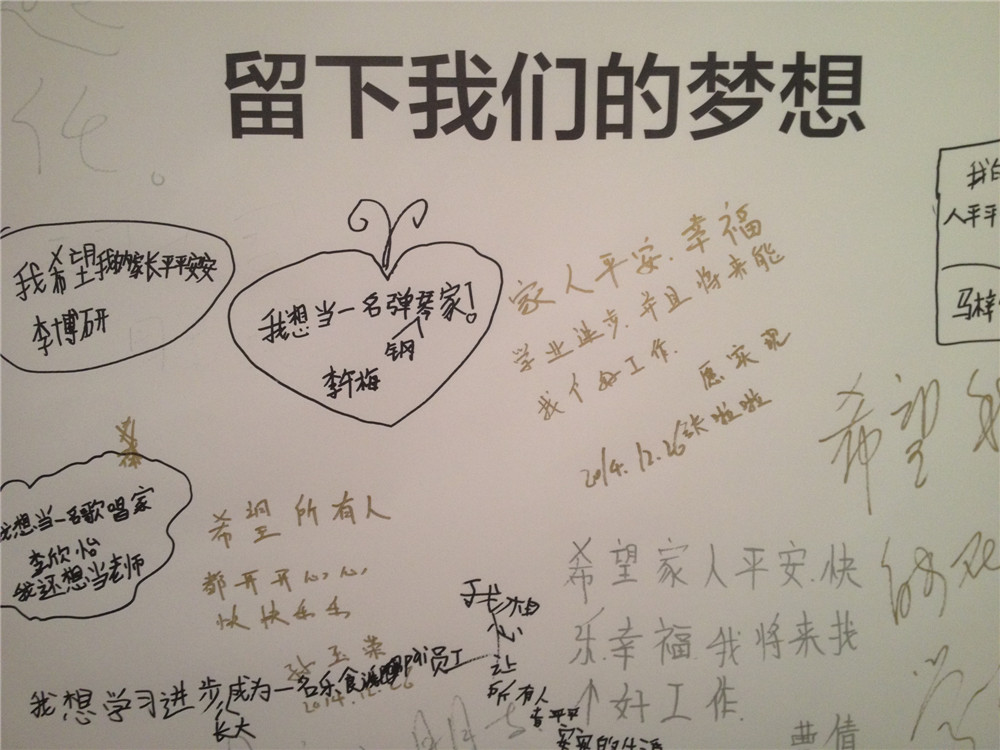 留下我们的梦想
我希望我的家长平平安安
李博研
我想当一名弹琴家!
钢
李午梅
家人平安.幸福
学业进步.并且将来能
找个好工作.
愿实现
2014.12.26 张啦啦
我的
人平平
马梓
我想当一名歌唱家
李欣怡
我还想当老师
希望所有人
都开开心心,
快快乐乐
2014.12.26
希望我
希望家人平安.快
乐.幸福.我将来找
个好工作.
曹倩
我想学习进步成为一名乐食派
员工
长大
我相心让
所有人